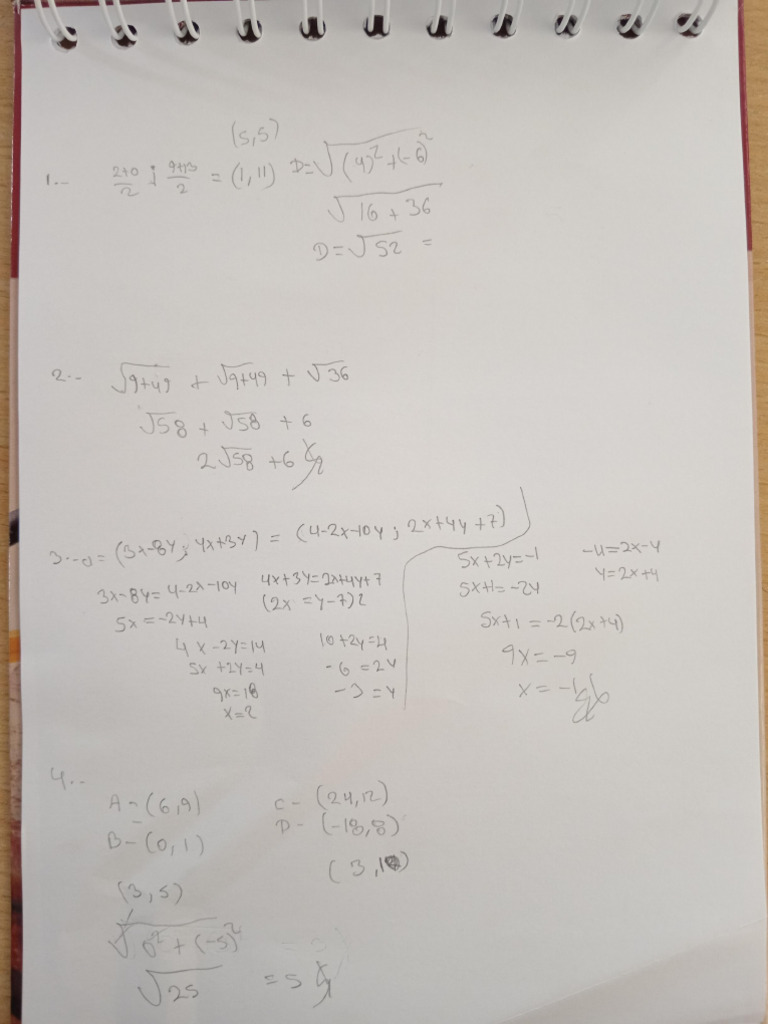 (5,5)
1.- 2+0/2 ; 9+13/2 = (1,11) D=√(4)²+(-6)²
√16+36
D=√52 =
2.- √9+49 + √9+49 + √36
√58 + √58 + 6
2√58 +6
3.- a= (3x-8y ; 4x+3y) = (4-2x-10y ; 2x+4y+7)
3x-8y=4-2x-10y 4x+3y=2x+4y+7
5x=-2y+4 (2x =y-7)2
4x-2y=14 10+2y=4
5x+2y=4 -6=2y
9x=18 -3=y
x=2
5x+2y=-1 -4=2x-y
5x+1=-2y y=2x+4
5x+1=-2(2x+4)
9x=-9
x=-1
4.-
A-(6,9) C-(24,12)
B-(0,1) D-(-18,8)
(3,5) (3,10)
√0²+(-5)²
√25 =5